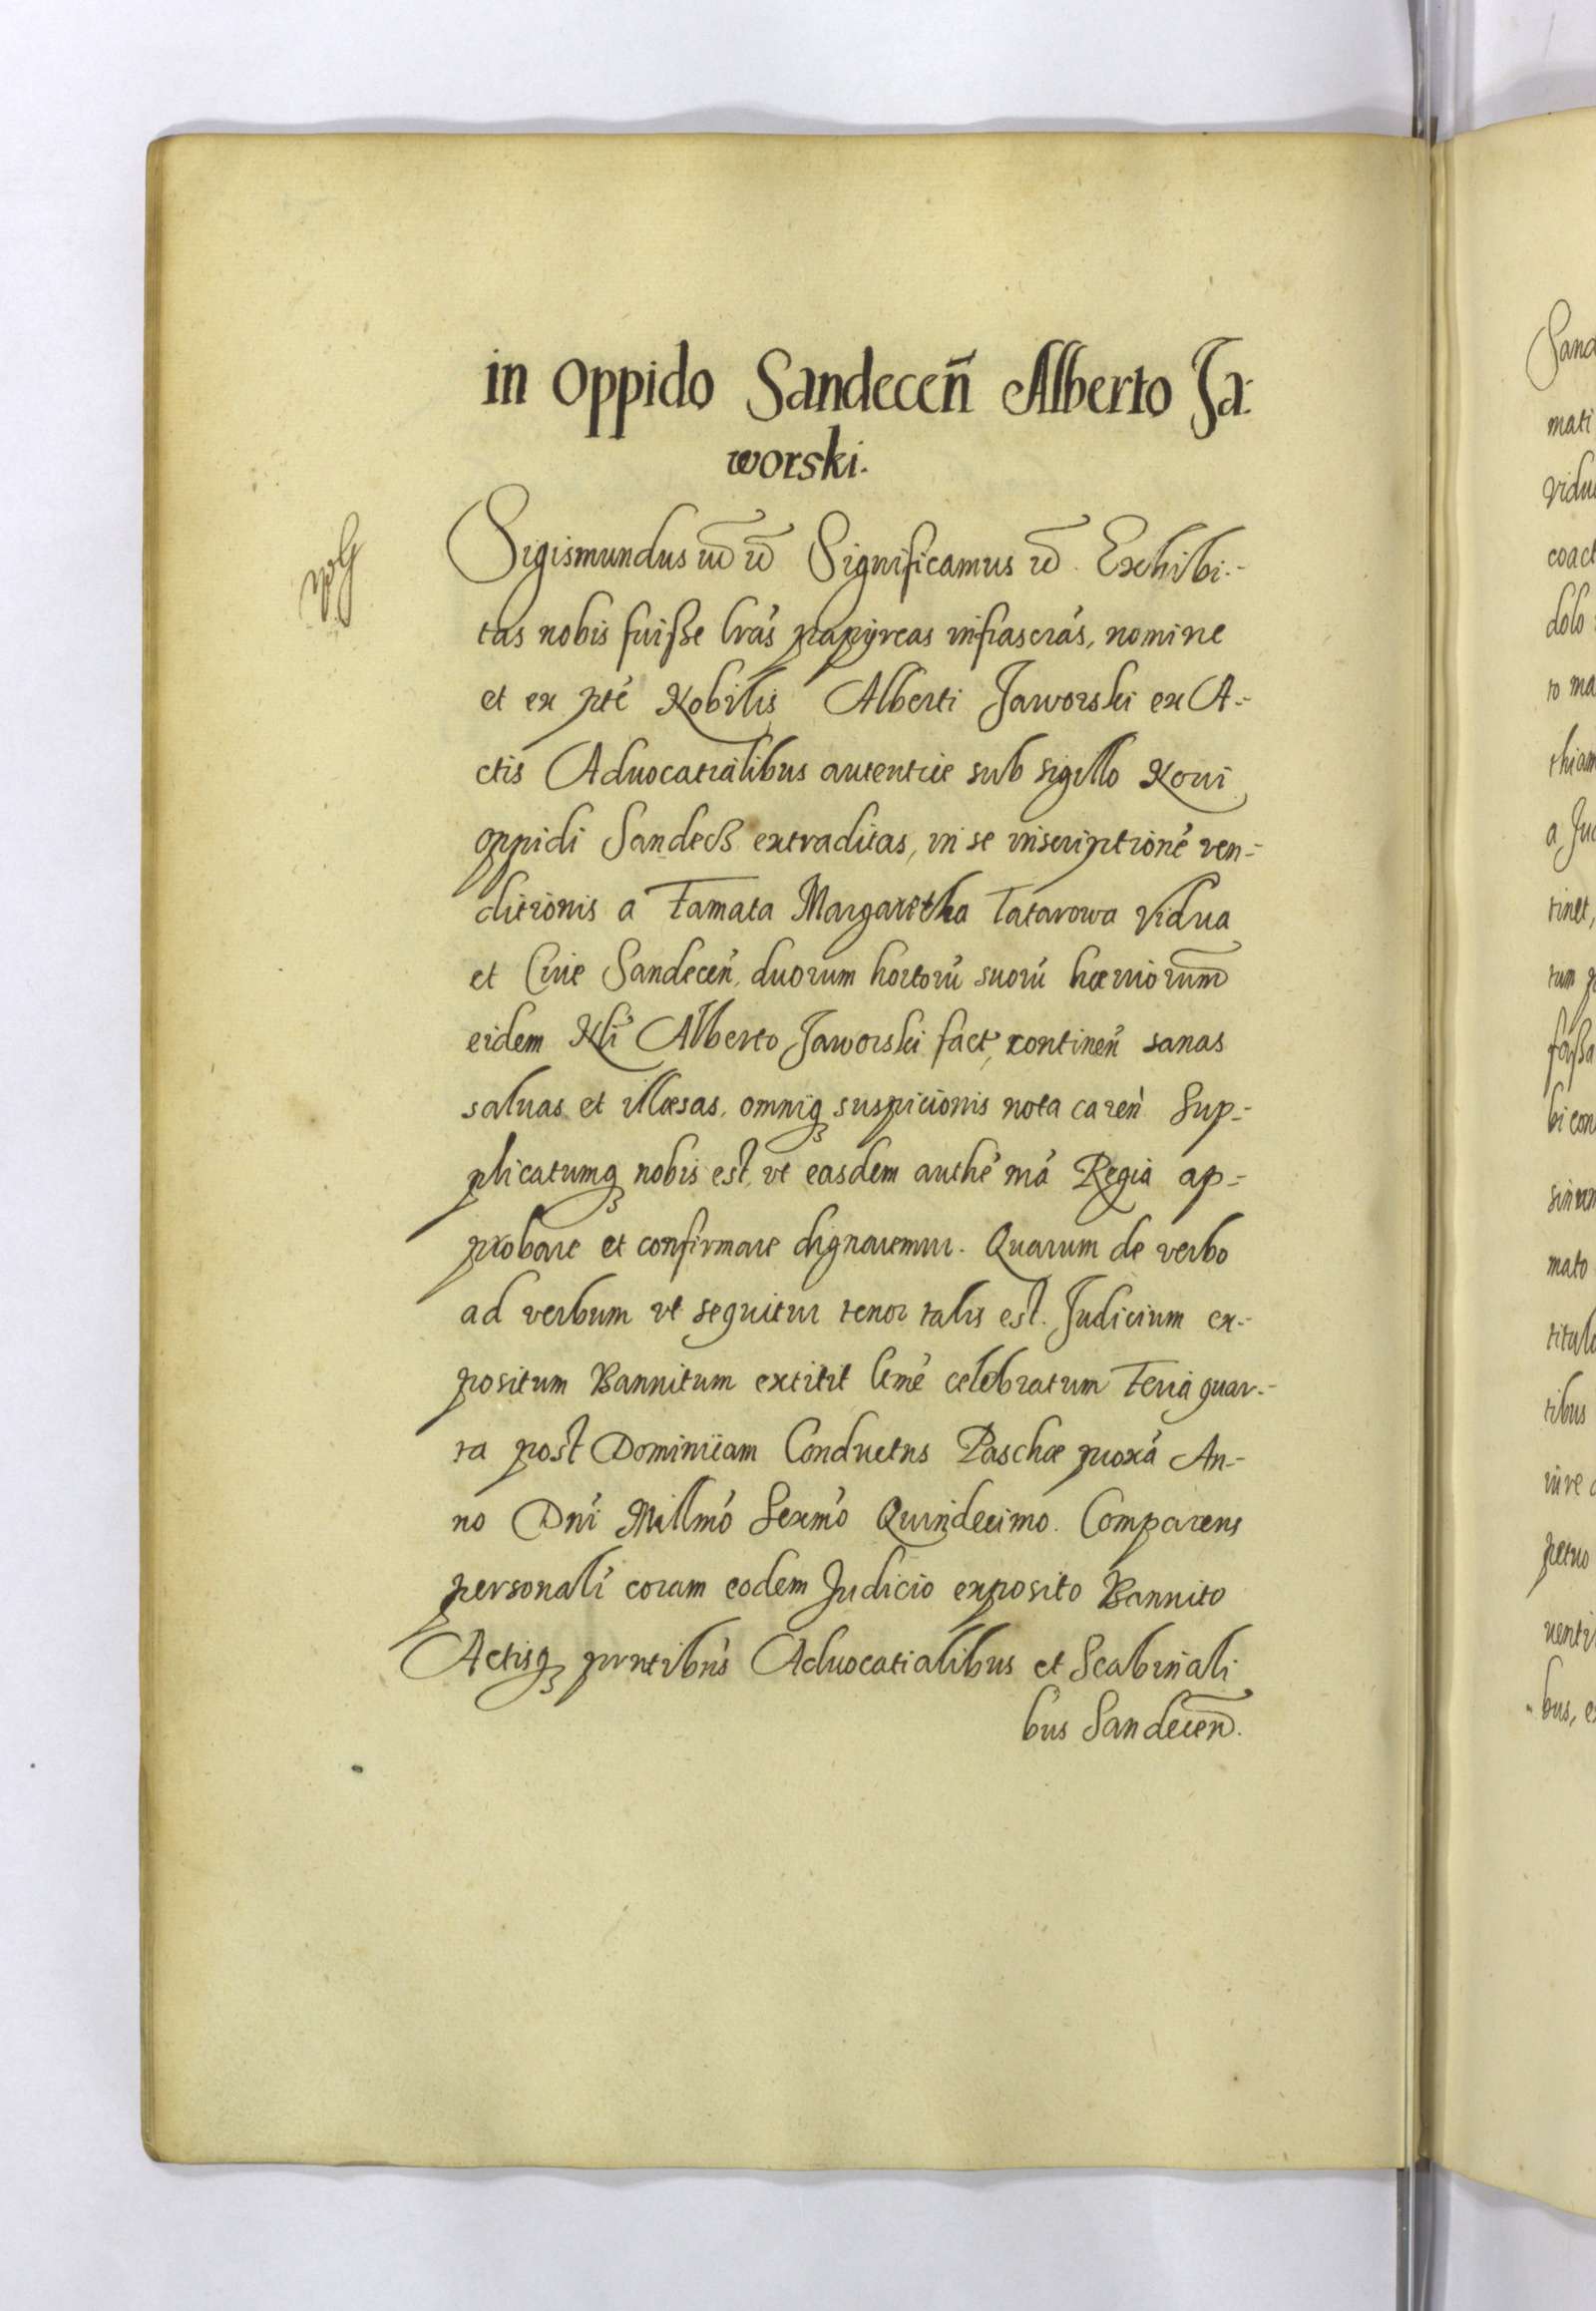 in oppido Sandeceñ Alberto Ja-
worski.
Sigismundus Significamus Exhibi-
tas nobis fuisse lrás papÿreas infrascrás, nomine
et ex pté Nobilis Alberti Jaworski ex A-
ctis Aduocatialibus autentice sub sigillo Noui
oppidi Sandecß extraditas, in se inscriptioné ven-
ditionis a Famata Margaretha Tatarowa Vidua
et Ciue Sandeceñ, duorum hortorú suorú
eidem Nli Alberto Jaworski fact, contineñ sanas
saluas et illæsas, omniq suspicionis nota careñ Sup-
plicatumq nobis est, vt easdem authé Regia ap-
probare et confirmare dignaremur. Quarum de verbo
ad verbum vt sequitur tenor talis est. Judicium ex-
positum Bannitum extitit celebratum Feria quar-
ta post Dominicam Conductus Paschæ proxá An-
no Dní Millmó Sexmó Quindecimo. Comparens
personalí coram eodem Judicio exposito Bannito
Actisq pnntibús Aduocatialibus et Scabinali
bus Sandeceñ.
Sand
mati
vidu
coact
dolo
to ma
thiam
a Jud
tinet,
tum
bi con
mato
titulo
tibus
iure
petuo
uenti
bus, e